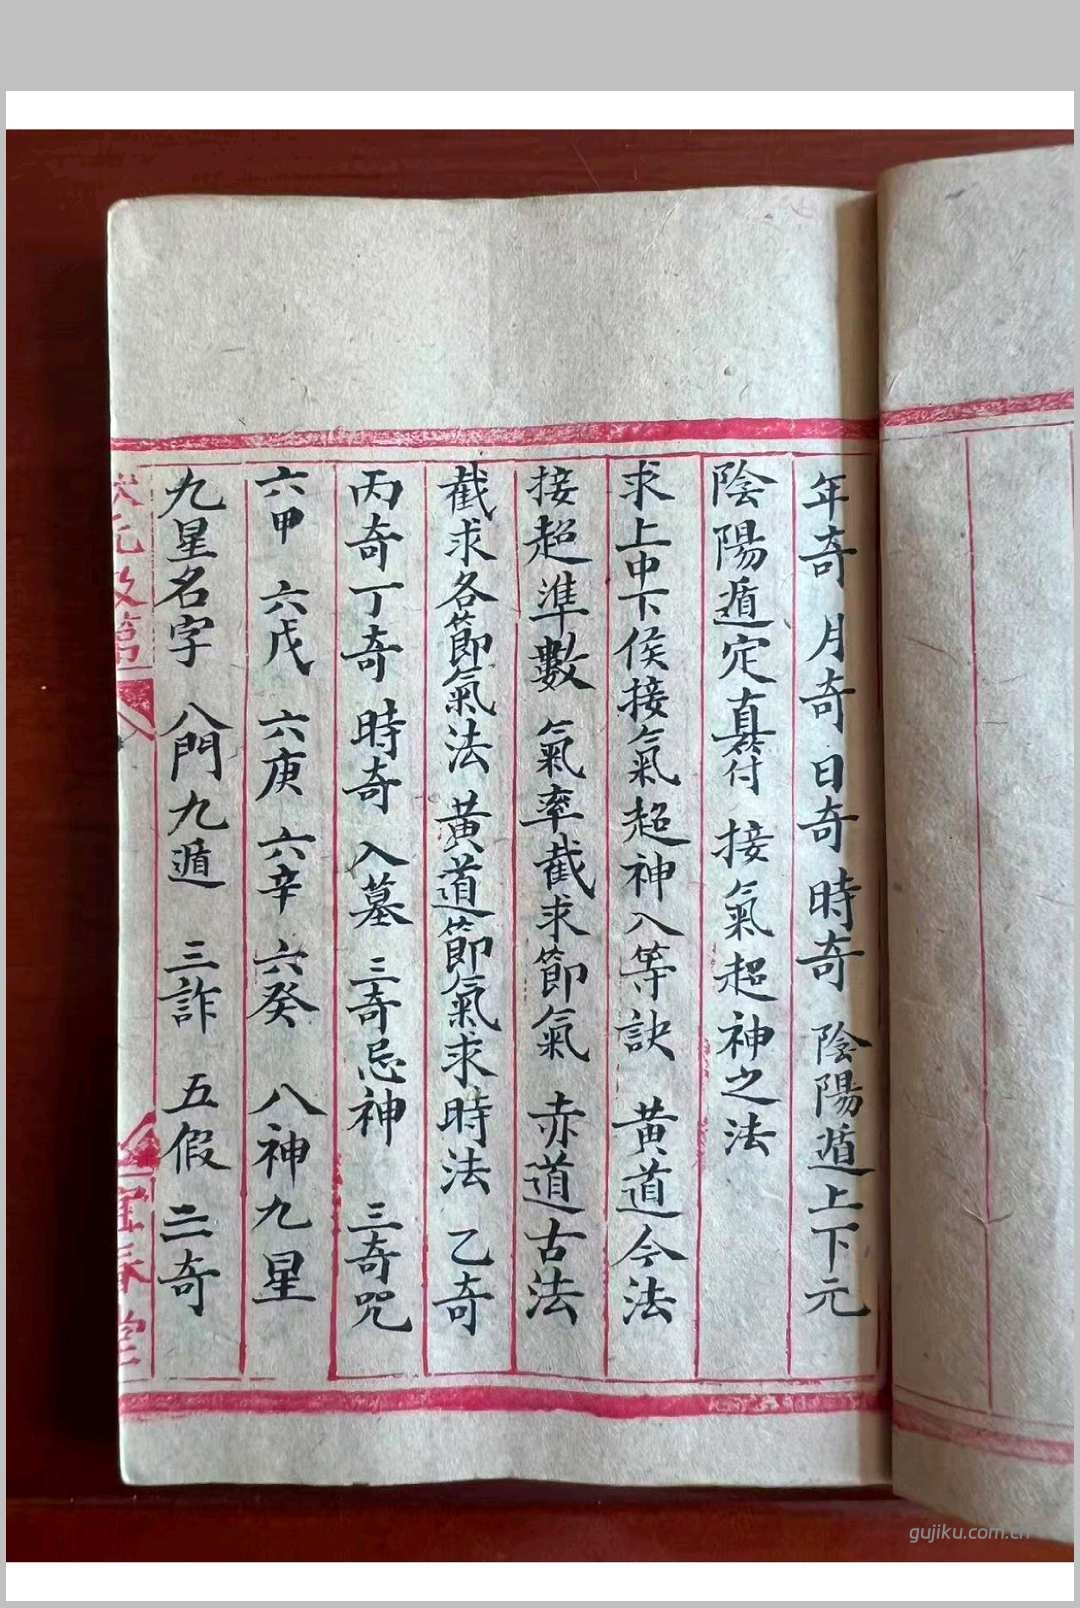 年奇 月奇 日奇 時奇 陰陽遁上下元
陰陽遁定真符 接氣超神之法
求上中下侯接氣超神入等訣 黃道今法
接超準數 氣率截求節氣 赤道古法
截求各節氣法 黃道節氣求時法 乙奇
丙奇丁奇 時奇 入墓 三奇忌神 三奇咒
六甲 六戊 六庚 六辛 六癸 八神九星
九星名字 八門九遁 三詐 五假 二奇
gujiku.com.cn